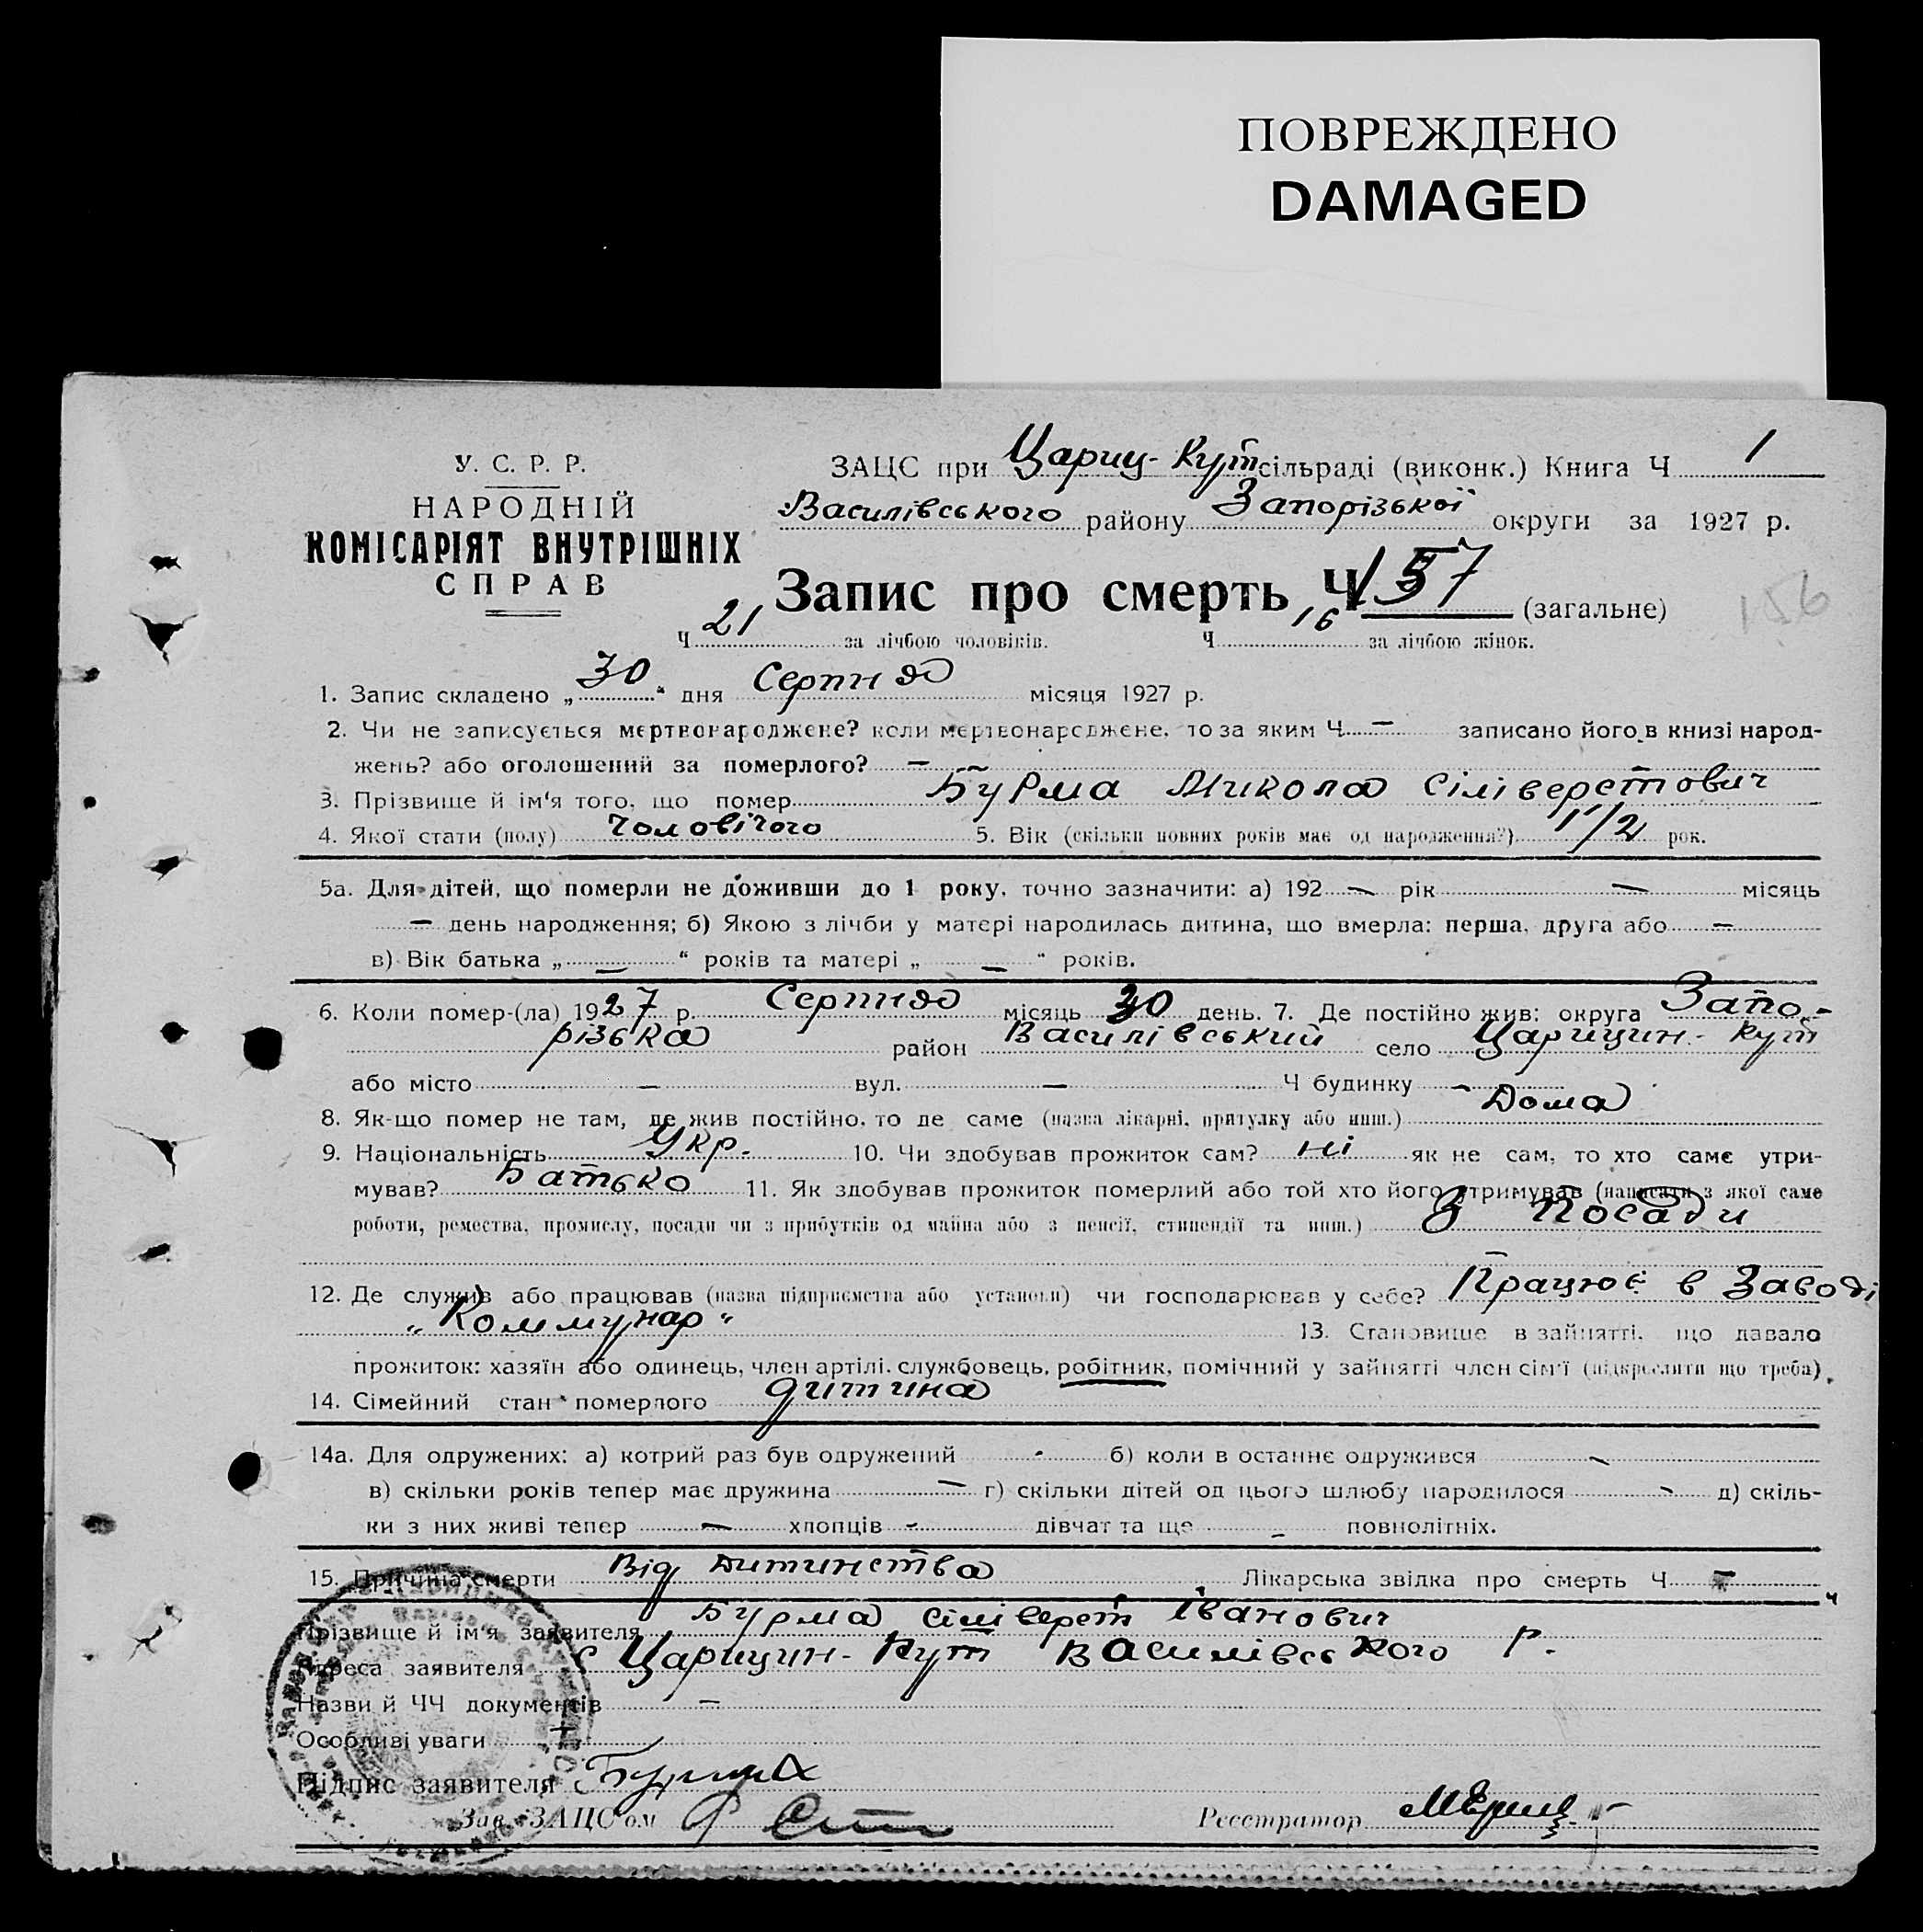 ПОВРЕЖДЕНО
DAMAGED
У. С. Р. Р.
НАРОДНІЙ
КОМІСАРІЯТ ВНУТРІШНІХ
СПРАВ
ЗАЦС при Цариц-Кут сільраді (виконк.) Книга Ч 1
Василівського району Запорізької округи за 1927 р.
Запис про смерть Ч 157 (загальне)
156
Ч 21 за лічбою чоловіків. Ч 16 за лічбою жінок.
1. Запис складено „30“ дня Серпня місяця 1927 р.
2. Чи не записується мертвонароджене? коли мертвонароджене, то за яким Ч — записано його в книзі народ-
жень? або оголошений за померлого? —
3. Прізвище й ім'я того, що помер Бурма Микола Сіліверстович
4. Якої стати (полу) Чоловічого 5. Вік (скільки повних років має од народження?) 1 1/2 рок.
5а. Для дітей, що померли не доживши до 1 року, точно зазначити: а) 192 — рік — місяць
— день народження; б) Якою з лічби у матері народилась дитина, що вмерла: перша, друга або —
в) Вік батька „ — “ років та матері „ — “ років.
6. Коли помер-(ла) 1927 р. Серпня місяць 30 день. 7. Де постійно жив: округа Запо-
різька район Василівський село Царицин-Кут
або місто — вул. — Ч будинку —
8. Як-що помер не там, де жив постійно, то де саме (назва лікарні, притулку або инш.) Дома
9. Національність Укр. 10. Чи здобував прожиток сам? ні як не сам, то хто саме утри-
мував? Батько 11. Як здобував прожиток померлий або той хто його утримував (написати з якої саме
роботи, ремества, промислу, посади чи з прибутків од майна або з пенсії, стипендії та инш.) З Посади
12. Де служив або працював (назва підприємства або установи) чи господарював у себе? Працює в Заводі
„Коммунар“ 13. Становище в зайнятті, що давало
прожиток: хазяїн або одинець, член артілі, службовець, робітник, помічний у зайнятті член сім'ї (підкреслити що треба).
14. Сімейний стан померлого дитина
14а. Для одружених: а) котрий раз був одружений - б) коли в останнє одружився —
в) скільки років тепер має дружина — г) скільки дітей од цього шлюбу народилося - д) скіль-
ки з них живі тепер — хлопців - дівчат та ще - повнолітніх.
15. Причина смерти Від дитинства Лікарська звідка про смерть Ч —
Прізвище й ім'я заявителя Бурма Сіліверст Іванович
Адреса заявителя с Царицин-Кут Василівського р.
Назви й ЧЧ документів —
Особливі уваги
Підпис заявителя Бурма
Зав. ЗАЦС'ом
Реєстратор